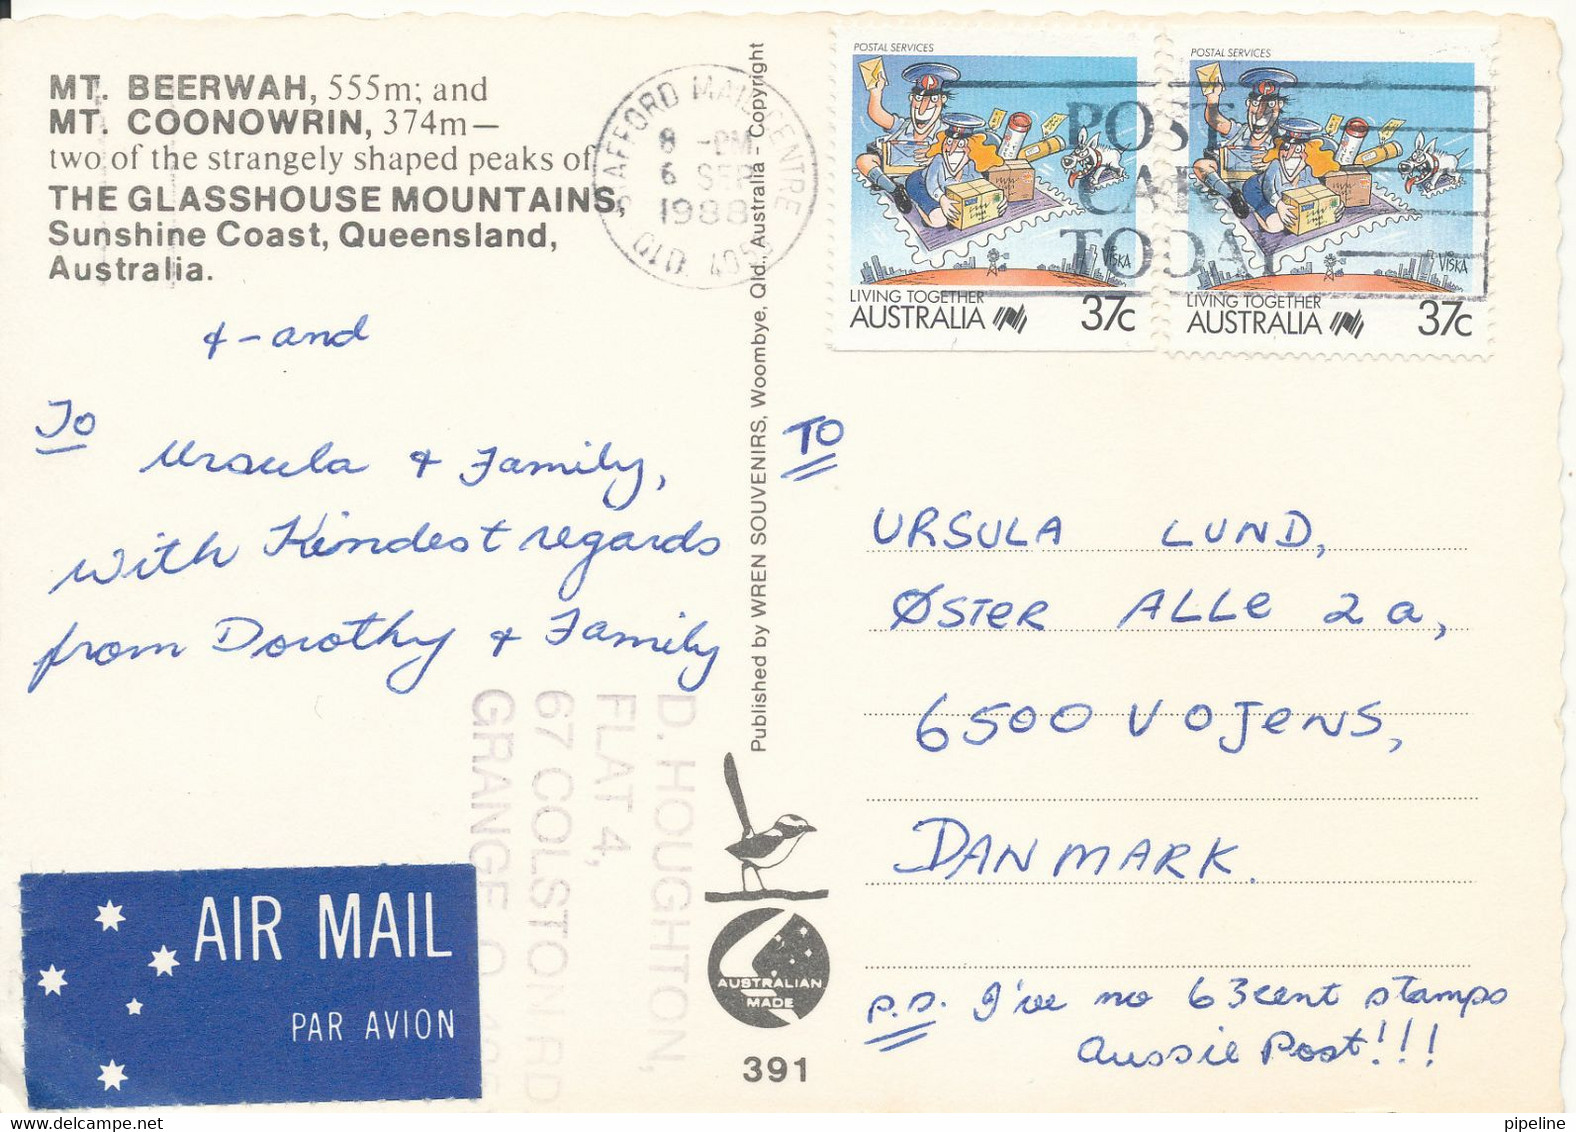 MT. BEERWAH, 555m; and
MT. COONOWRIN, 374m—
two of the strangely shaped peaks of
THE GLASSHOUSE MOUNTAINS,
Sunshine Coast, Queensland,
Australia.
&-and
To
Ursula & Family,
with Kindest regards
from Dorothy & Family
D. HOUGHTON,
FLAT 4,
67 COLSTON RD
GRANGE Q
AIR MAIL
PAR AVION
Published by WREN SOUVENIRS, Woombye, Qld., Australia - Copyright
AUSTRALIAN
MADE
391
STAFFORD MAIL CENTRE
8 -PM
6 SEP
1988
QLD. 4053
POSTAL SERVICES
VISKA
LIVING TOGETHER
AUSTRALIA 37c
POSTAL SERVICES
VISKA
LIVING TOGETHER
AUSTRALIA 37c
POST
TODAY
TO
URSULA LUND,
ØSTER ALLE 2a,
6500 VOJENS,
DANMARK.
P.S. I've no 63cent stamps
Aussie Post!!!
pipeline